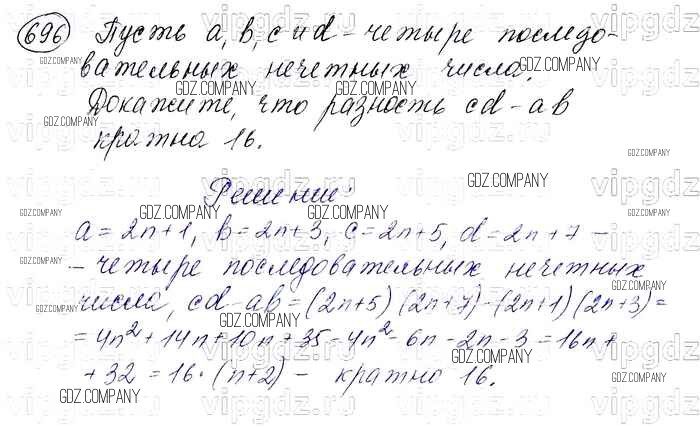 696 Пусть a, b, c и d - четыре последо-
вательных нечетных числа.
Докажите, что разность cd - ab
кратна 16.
Решение:
a = 2n+1, b = 2n+3, c = 2n+5, d = 2n+7 -
- четыре последовательных нечетных
числа, cd-ab = (2n+5)(2n+7)-(2n+1)(2n+3) =
= 4n² + 14n + 10n + 35 - 4n² - 6n - 2n - 3 = 16n +
+ 32 = 16 · (n+2) - кратно 16.
GDZ.COMPANY
vipgdz.ru